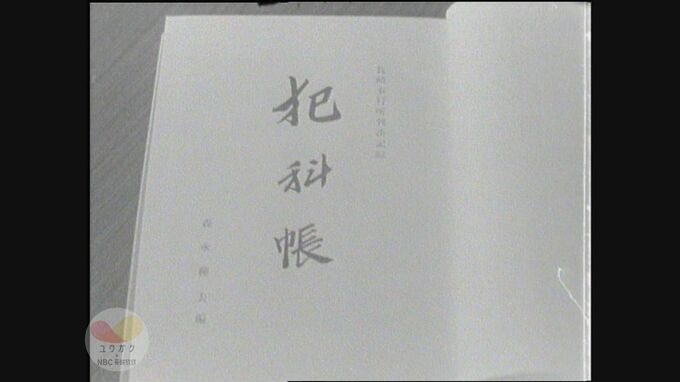 長崎奉行所判決記録
犯科帳
森永種夫編
ユウガク
NBC長崎放送